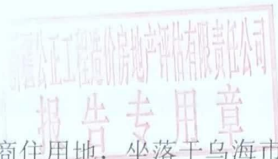 新疆公正工程造价房地产评估有限责任公司
报告专用章
商住用地，坐落于乌海市